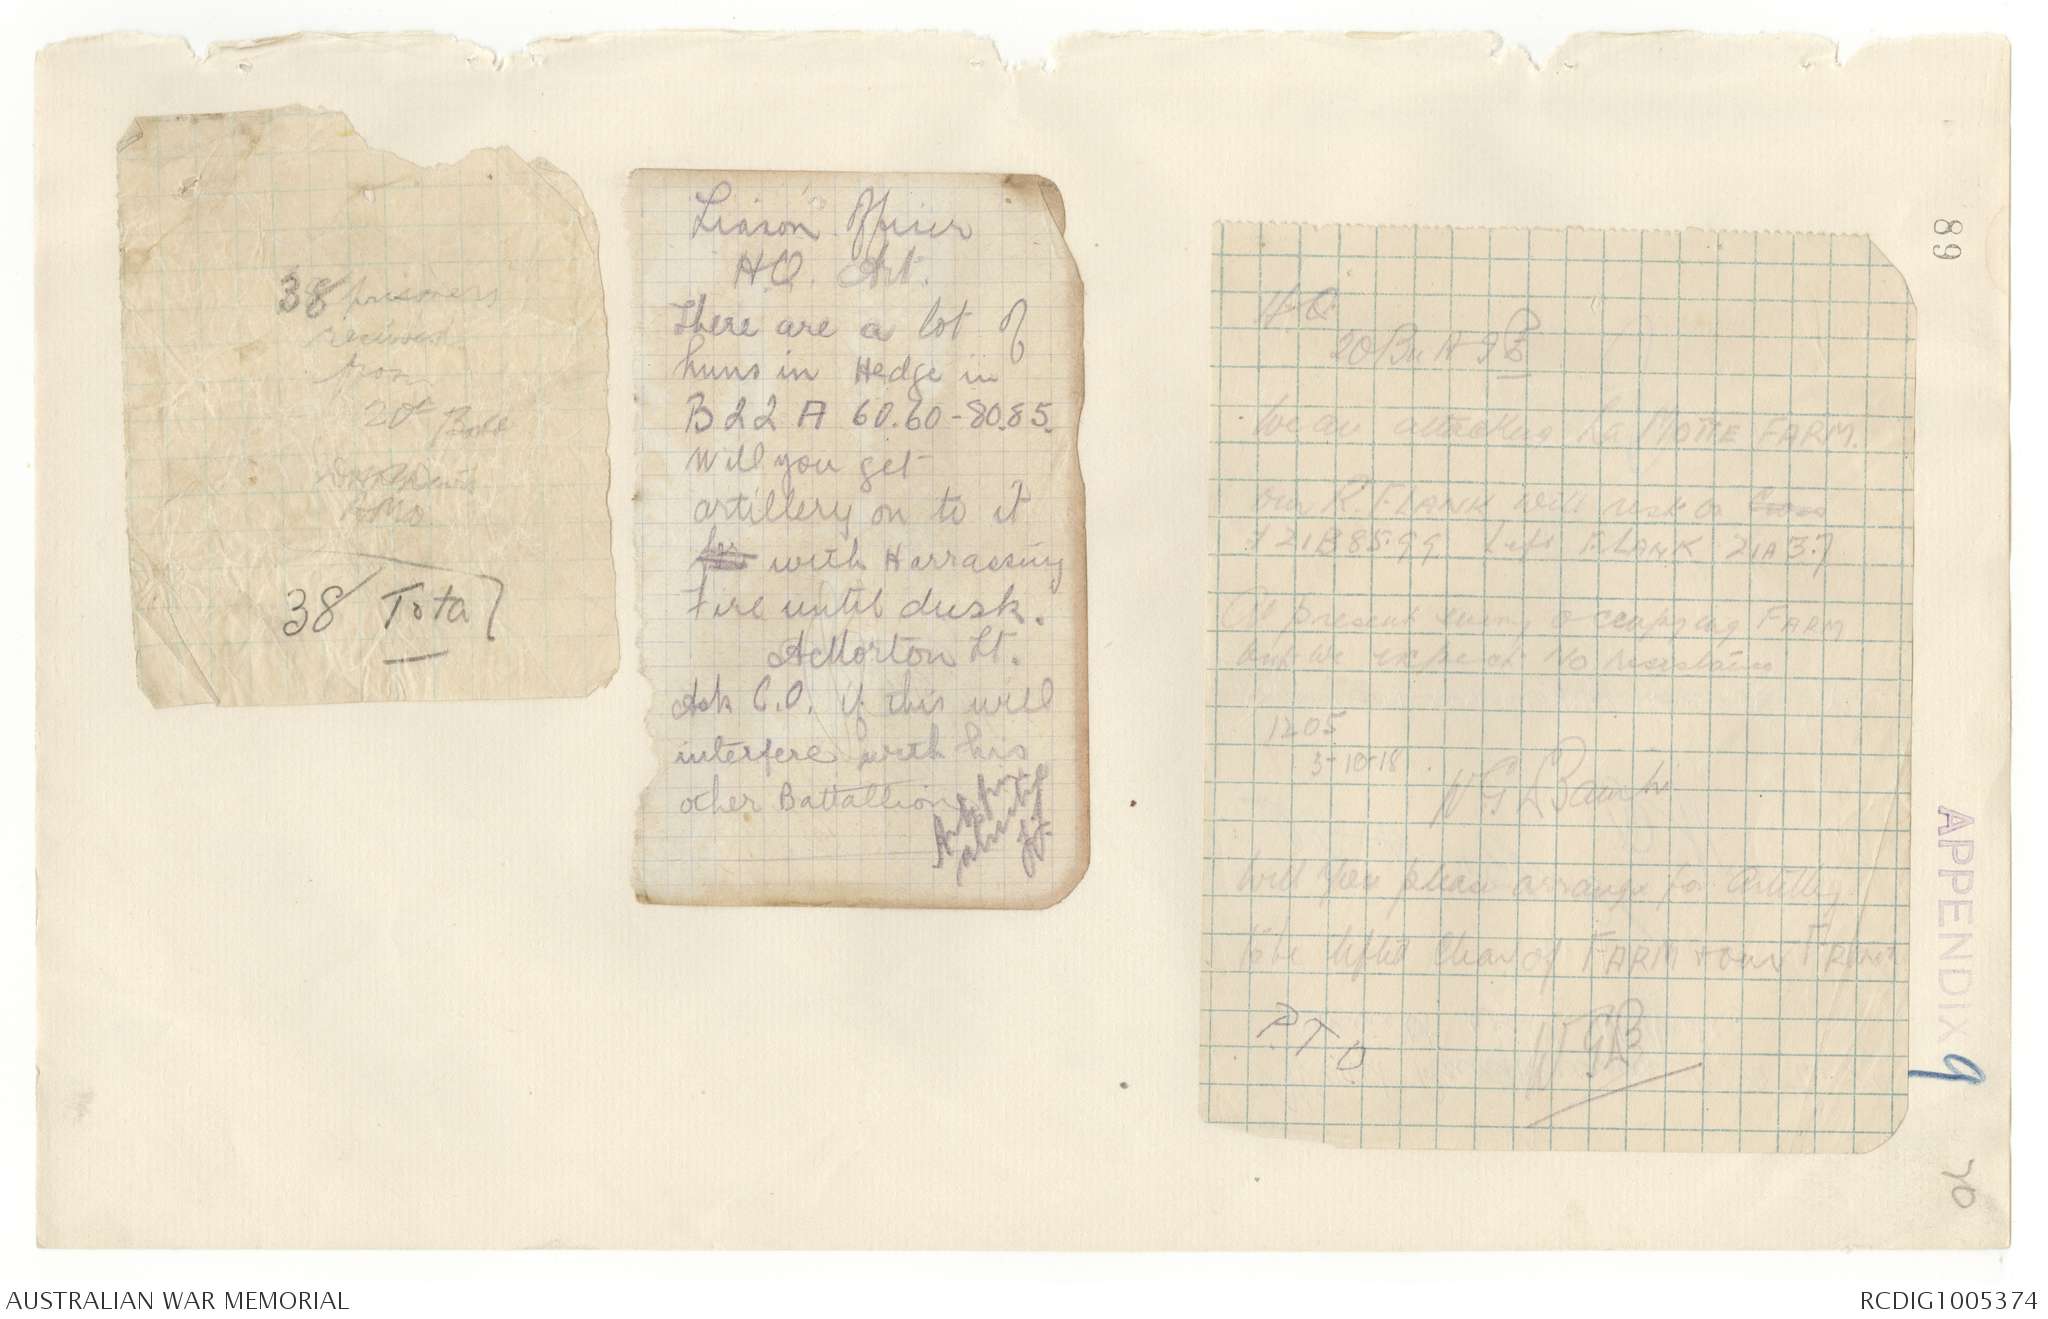 38 prisoners
received
from
20th Batt
RMO
38 Total
Liason Officer
H.Q. Art.
There are a lot of
huns in Hedge in
B 22 A 60.60-80.85.
Will you get
artillery on to it
with Harrassing
Fire until dusk.
A Morton Lt.
Ask C.O. if this will
interfere with his
other Battallion
H.Q.
20 Bn A I F
We are attacking La MOTTE FARM.
our R. FLANK will rest on
I 21B85.99 Left FLANK 21A3.7
At present enemy occupying FARM
but we expect No resistance
1205
3-10-18
Will you please arrange for artillery
to be lifted clear of FARM & our FRONT
P.T.O
WGB
89
APPENDIX 9
70
AUSTRALIAN WAR MEMORIAL
RCDIG1005374